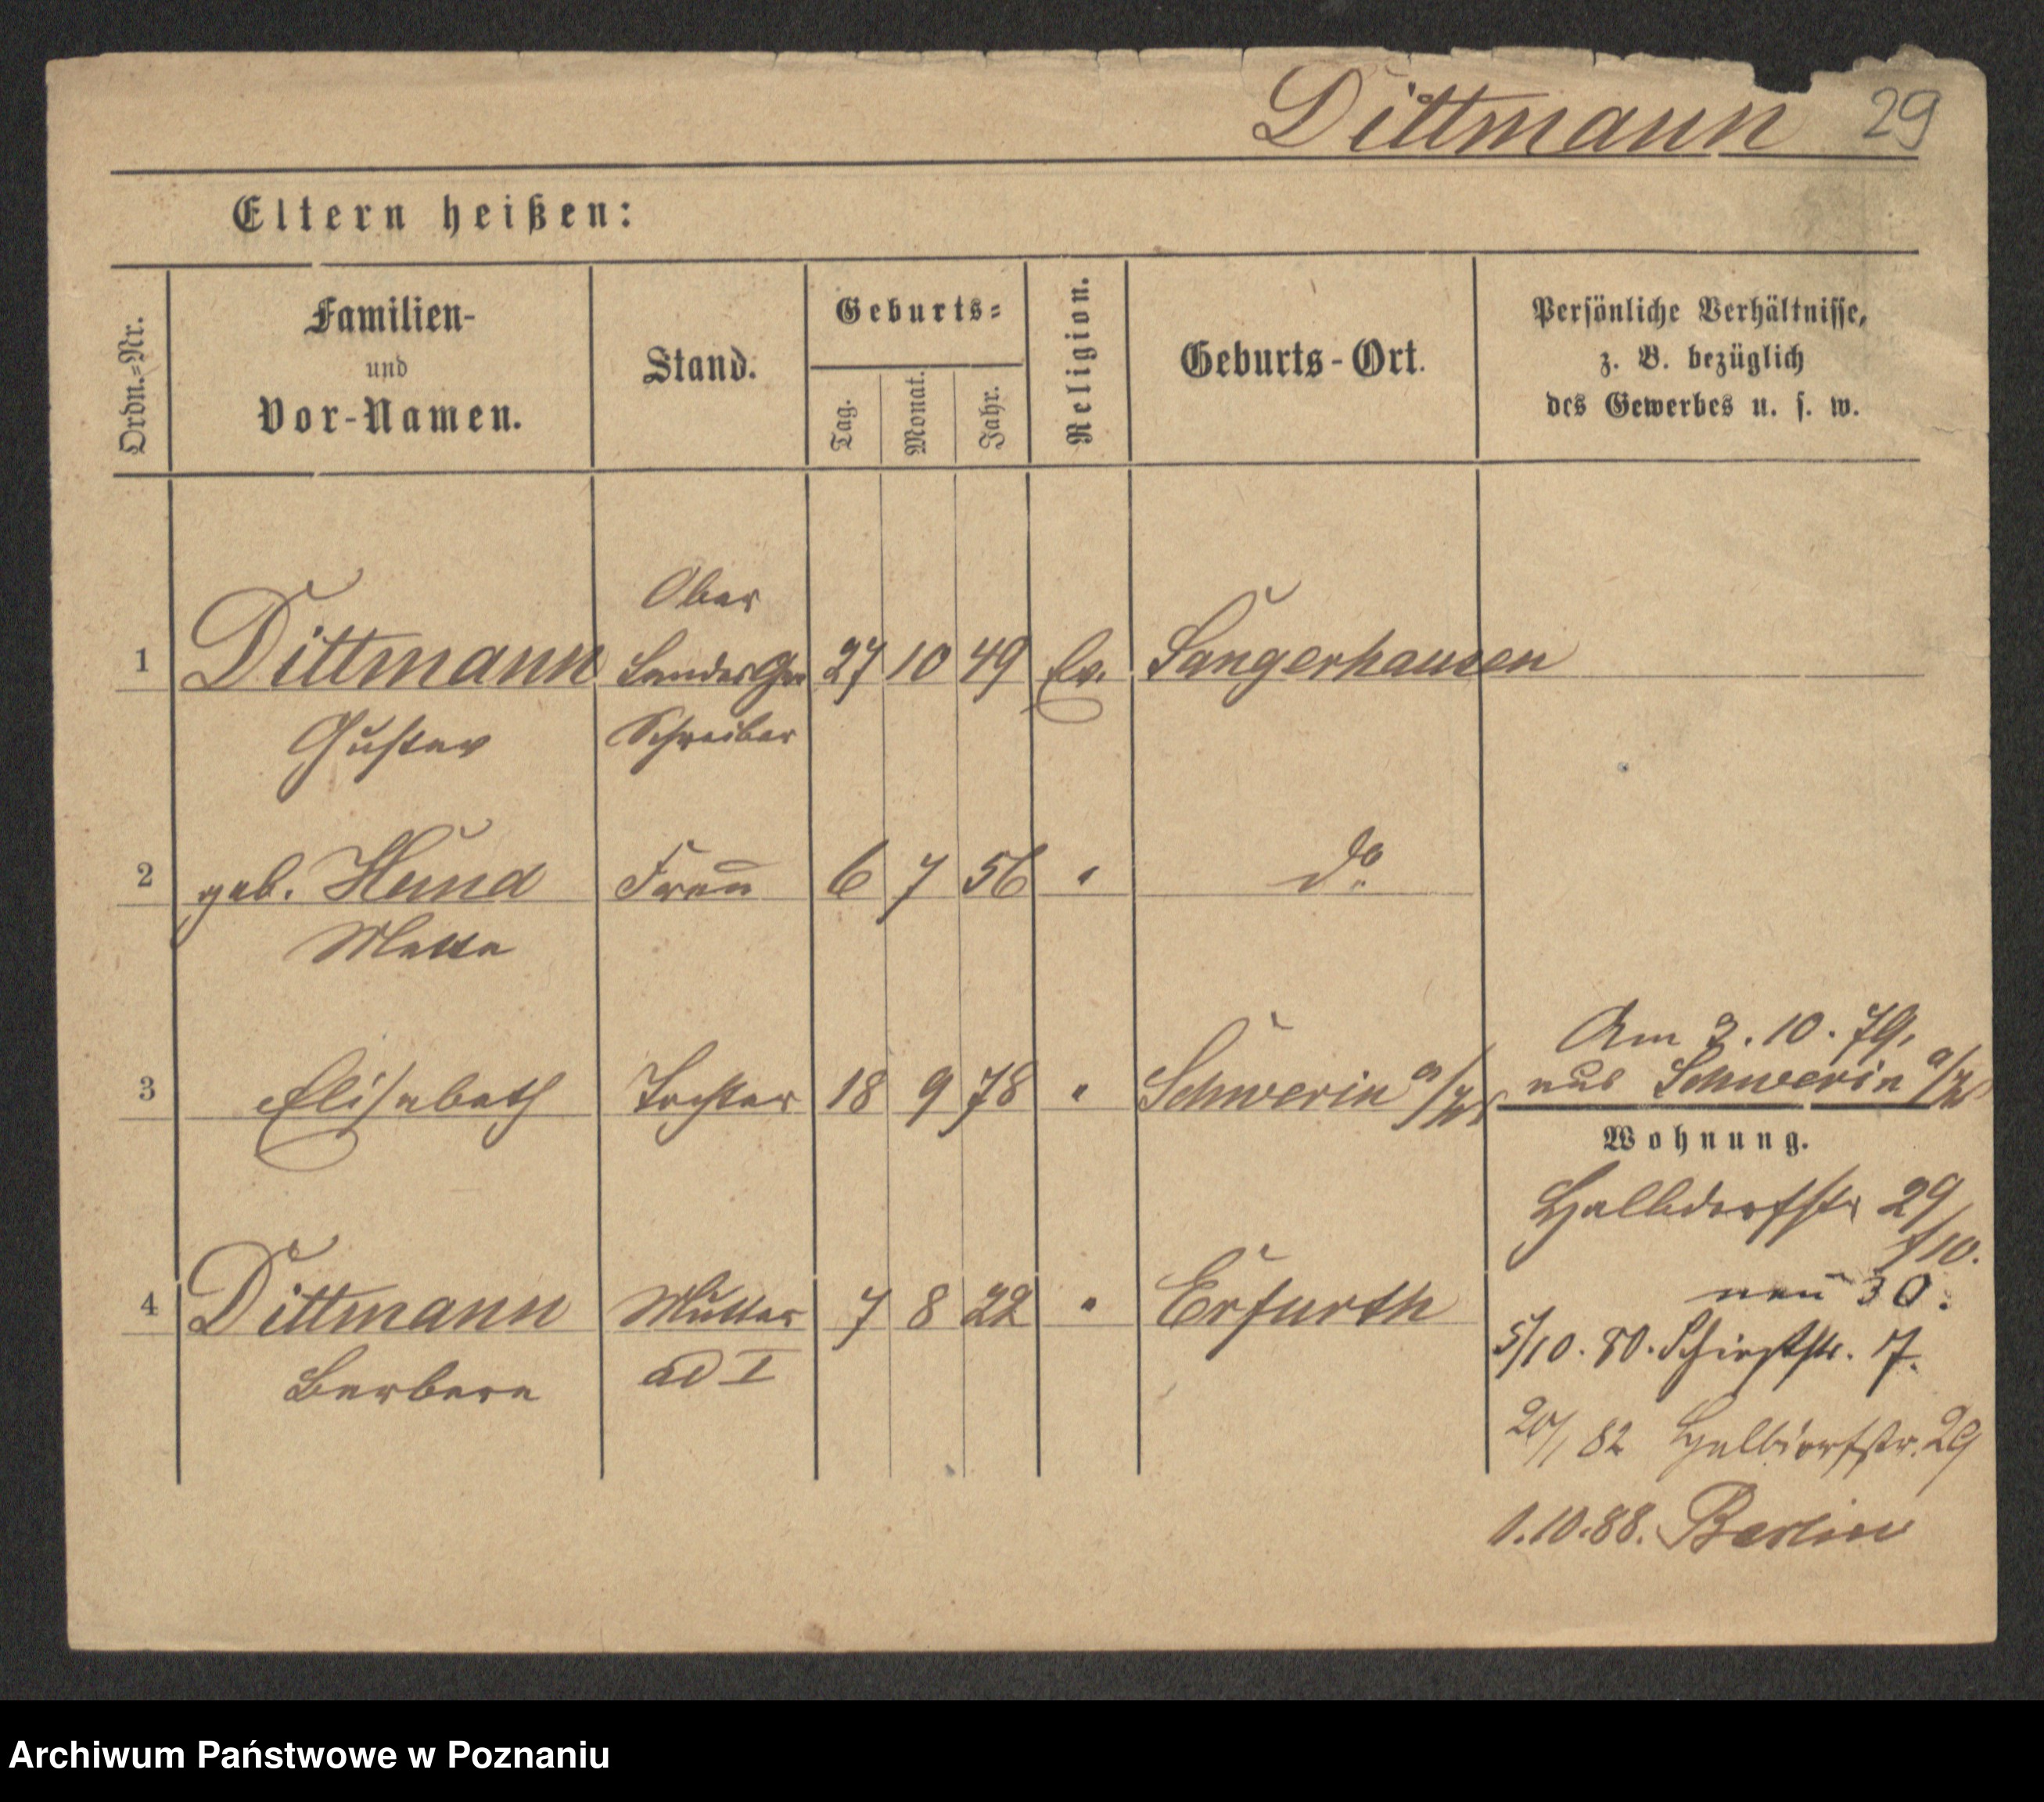 Dittmann 29
Eltern heißen:
Ordn.=Nr.
Familien-
und
Vor-Namen.
Stand.
Geburts=
Tag.
Monat.
Jahr.
Religion.
Geburts-Ort.
Persönliche Verhältnisse,
z. B. bezüglich
des Gewerbes u. s. w.
Ober
1 Dittmann LandesGer 27 10 49 Ev. Sangerhausen
Gustav Schreiber
2 geb. Hund Frau 6 7 56 " do
3 Elisabeth Tochter 18 9 78 " Schwerin a/W
Am 3. 10. 79.
aus Schwerin a/W
Wohnung.
Halbdorfstr 29
/10.
neu 30.
4 Dittmann Mutter 7 8 22 " Erfurth
Barbara ad I
5/10. 80. 7.
20/1 82 Halbdorfstr. 29
1.10.88. Berlin
Archiwum Państwowe w Poznaniu